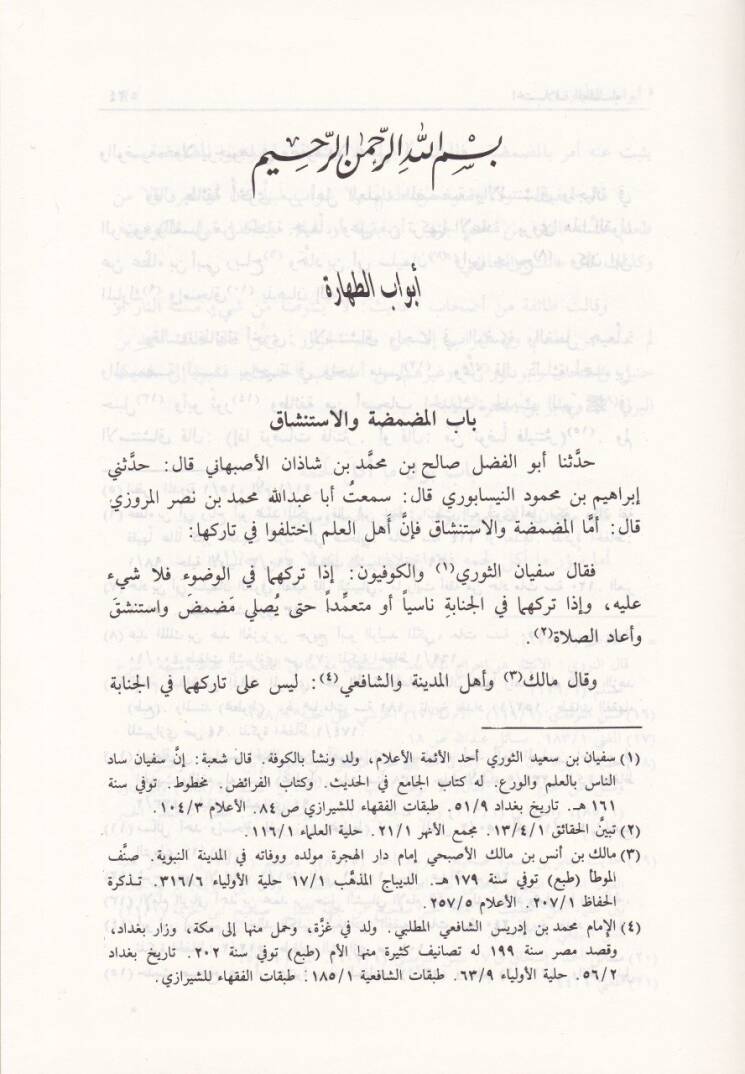 بسم الله الرحمن الرحيم
أبواب الطهارة
باب المضمضة والاستنشاق
حدَّثنا أبو الفضل صالح بن محمَّد بن شاذان الأصبهاني قال: حدَّثني
إبراهيم بن محمود النيسابوري قال: سمعتُ أبا عبدالله محمد بن نصر المروزي
قال: أمَّا المضمضة والاستنشاق فإنَّ أهل العلم اختلفوا في تاركها:
فقال سفيان الثوري(١) والكوفيون: إذا تركهما في الوضوء فلا شيء
عليه، وإذا تركهما في الجنابةِ ناسياً أو متعمِّداً حتى يُصلي مَضمضَ واستنشقَ
وأعاد الصلاة(٢).
وقال مالك(٣) وأهل المدينة والشافعي(٤): ليس على تاركهما في الجنابة
(١) سفيان بن سعيد الثوري أحد الأئمة الأعلام، ولد ونشأ بالكوفة. قال شعبة: إنَّ سفيان ساد
الناس بالعلم والورع. له كتاب الجامع في الحديث. وكتاب الفرائض. مخطوط. توفي سنة
١٦١ هـ. تاريخ بغداد ٥١/٩. طبقات الفقهاء للشيرازي ص ٨٤. الأعلام ١٠٤/٣.
(٢) تبيَّن الحقائق ١٣/٤/١. مجمع الأنهر ٢١/١. حلية العلماء ١١٦/١.
(٣) مالك بن أنس بن مالك الأصبحي إمام دار الهجرة مولده ووفاته في المدينة النبوية. صنَّف
الموطأ (طبع) توفي سنة ١٧٩ هـ. الديباج المذهَّب ١٧/١ حلية الأولياء ٣١٦/٦. تذكرة
الحفاظ ٢٠٧/١. الأعلام ٢٥٧/٥.
(٤) الإمام محمد بن إدريس الشافعي المطلبي. ولد في غزَّة، وحمل منها إلى مكة، وزار بغداد،
وقصد مصر سنة ١٩٩ له تصانيف كثيرة منها الأم (طبع) توفي سنة ٢٠٢. تاريخ بغداد
٥٦/٢. حلية الأولياء ٦٣/٩. طبقات الشافعية ١٨٥/١: طبقات الفقهاء للشيرازي.